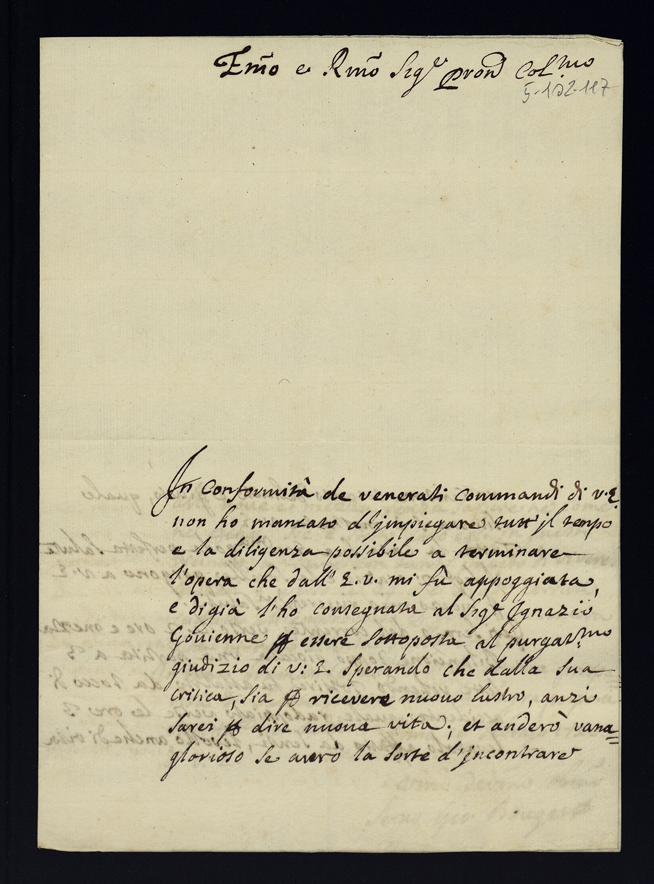 Em̃o e Rmõ Sigʳᵉ Pron̄ Col:ᵐᵒ
5-192-117
In conformità de venerati commandi di v: E
non ho mancato d'jmpiegare tutt'jl tempo
e la diligenza possibile a terminare
l'opera che dall' E. v. mi fù appoggiata,
e digià l'ho consegnata al Sigʳᵉ Ignazio
Gouienne ꝑ essere sottoposta al purgatᵐᵒ
giudizio di v: E. Sperando che dalla sua
critica, sia ꝑ ricevere nuouo lustro, anzi
sarei ꝑ dire nuoua vita; et anderò vana=
glorioso se auerò la sorte d'jncontrare